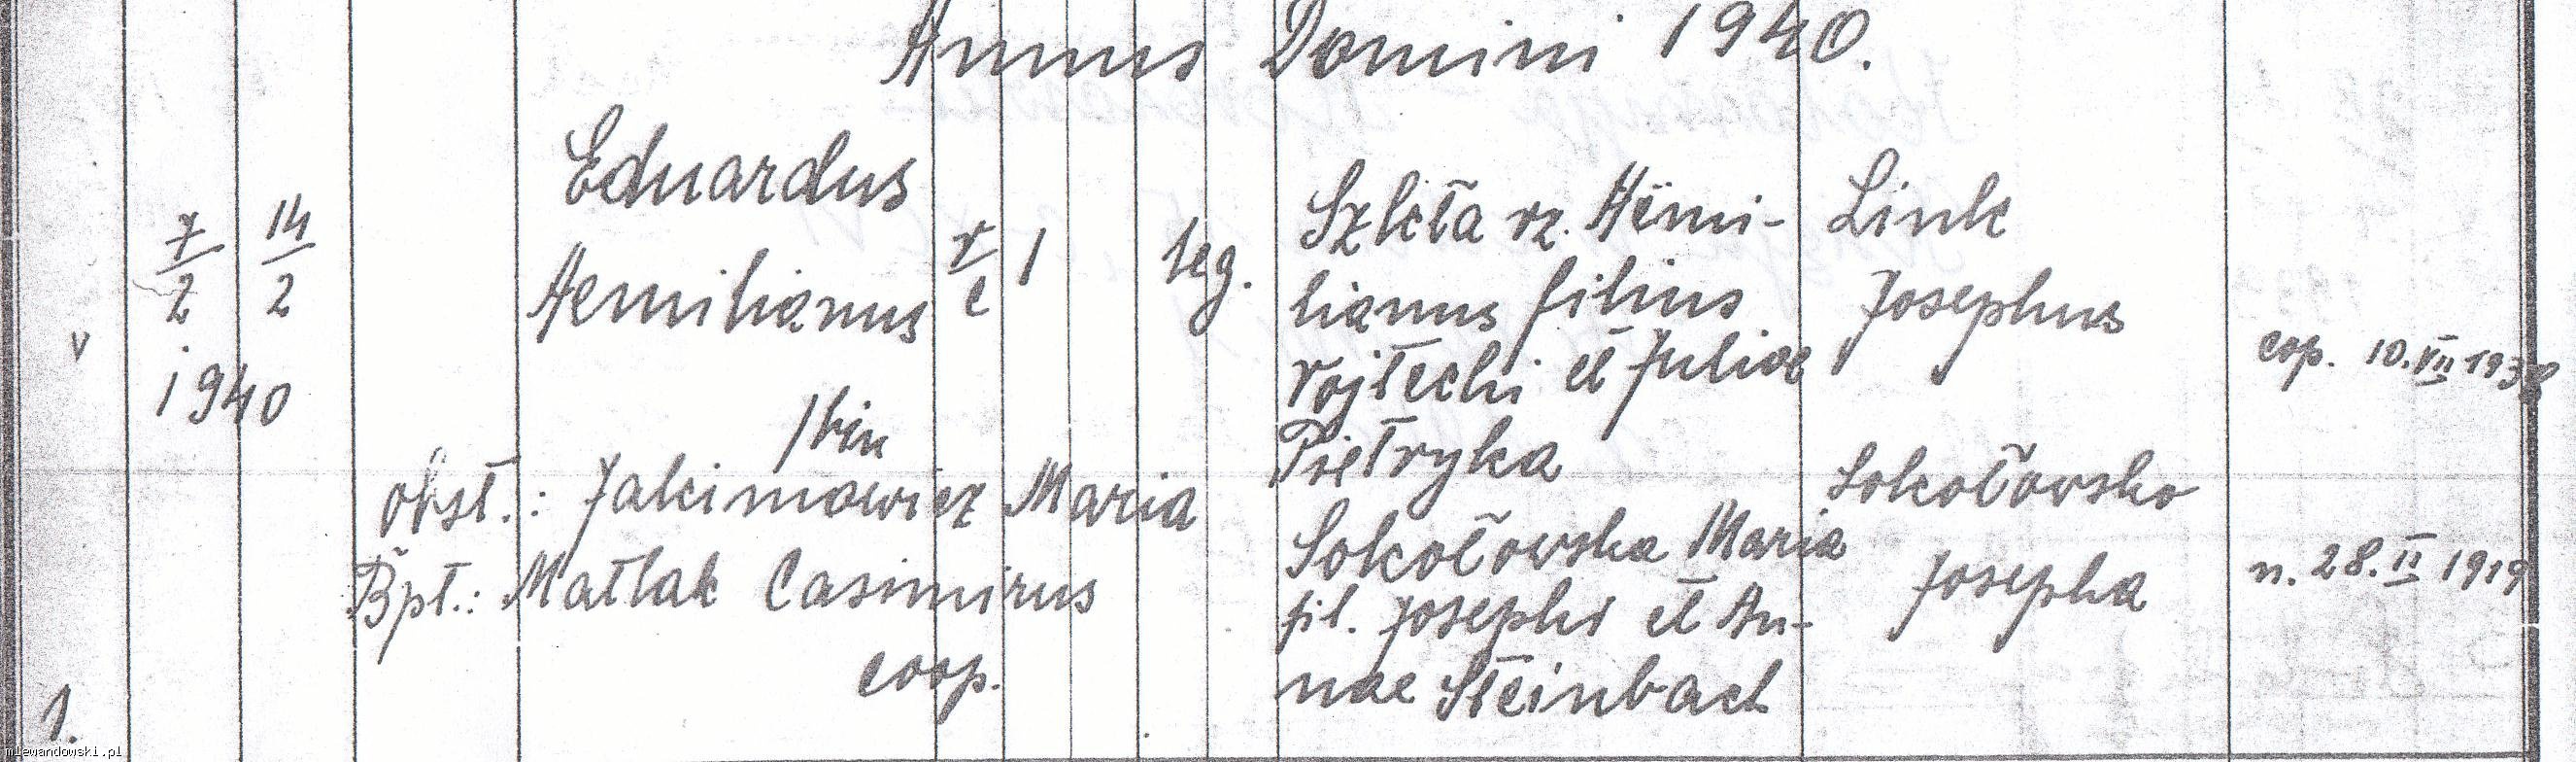 Annus Domini 1940.
Eduardus
Aemilianus
7/2 14/2
1940
r/c 1 leg.
Szleta rz. Aemi-
lianus filius
Vojtechi et Juliae
Pietryka
Sokołowska Maria
fil. Josephi et An-
nae Steinbach
Link
Josephus
Sokołowska
Josepha
cop. 10.VII 1938
n. 28.II 1919
v
obst.: Jakimowicz Maria
Bpt.: Matlak Casimirus
coop.
1.
mlewandowski.pl